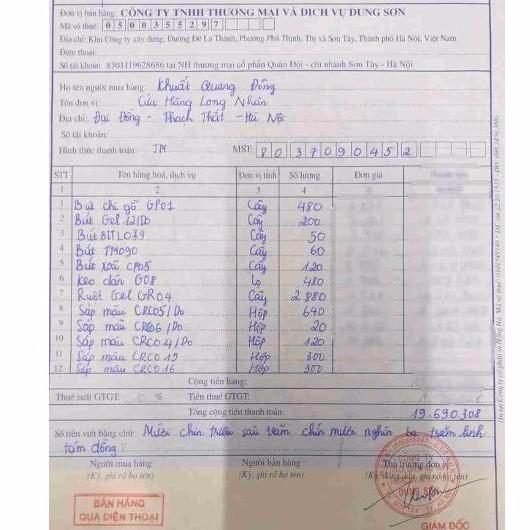 Đơn vị bán hàng: CÔNG TY TNHH THƯƠNG MẠI VÀ DỊCH VỤ DUNG SƠN
Mã số thuế: 0500035297
Địa chỉ: Khu Công ty xây dựng, Đường Đê La Thành, Phường Phú Thịnh, Thị xã Sơn Tây, Thành phố Hà Nội, Việt Nam
Điện thoại:
Số tài khoản: 8301119628686 tại NH thương mại cổ phần Quân Đội - chi nhánh Sơn Tây - Hà Nội
Họ tên người mua hàng: Khuất Quang Đông
Tên đơn vị: Cửa Hàng Long Nhân
Địa chỉ: Đại Đồng - Thạch Thất - Hà Nội
Số tài khoản:
Hình thức thanh toán: TM MST: 8037090452
STT Tên hàng hoá, dịch vụ Đơn vị tính Số lượng Đơn giá
1 2 3 4
1 Bút chì gỗ GP01 Cây 480
2 Bút Gel Cây 200
3 Bút BITL039 Cây 50
4 Bút TM090 Cây 60
5 Bút xoá CP05 Cây 120
6 Keo dán G08 Lọ 480
7 Ruột Gel GR04 Cây 2880
8 Sáp màu CRC05/Do Hộp 640
9 Sáp màu CRC06/Do Hộp 20
10 Sáp màu CRC04/Do Hộp 120
11 Sáp màu CRC015 Hộp 300
12 Sáp màu CRC016 Hộp 300
Cộng tiền hàng:
Thuế suất GTGT: % Tiền thuế GTGT:
Tổng cộng tiền thanh toán: 19.690.308
Số tiền viết bằng chữ: Mười chín triệu sáu trăm chín mươi nghìn ba trăm linh
tám đồng!
Người mua hàng Người bán hàng Thủ trưởng đơn vị
(Ký, ghi rõ họ tên) (Ký, ghi rõ họ tên) (Ký đóng dấu, ghi rõ họ tên)
BÁN HÀNG
QUA ĐIỆN THOẠI
DUNG SƠN
GIÁM ĐỐC